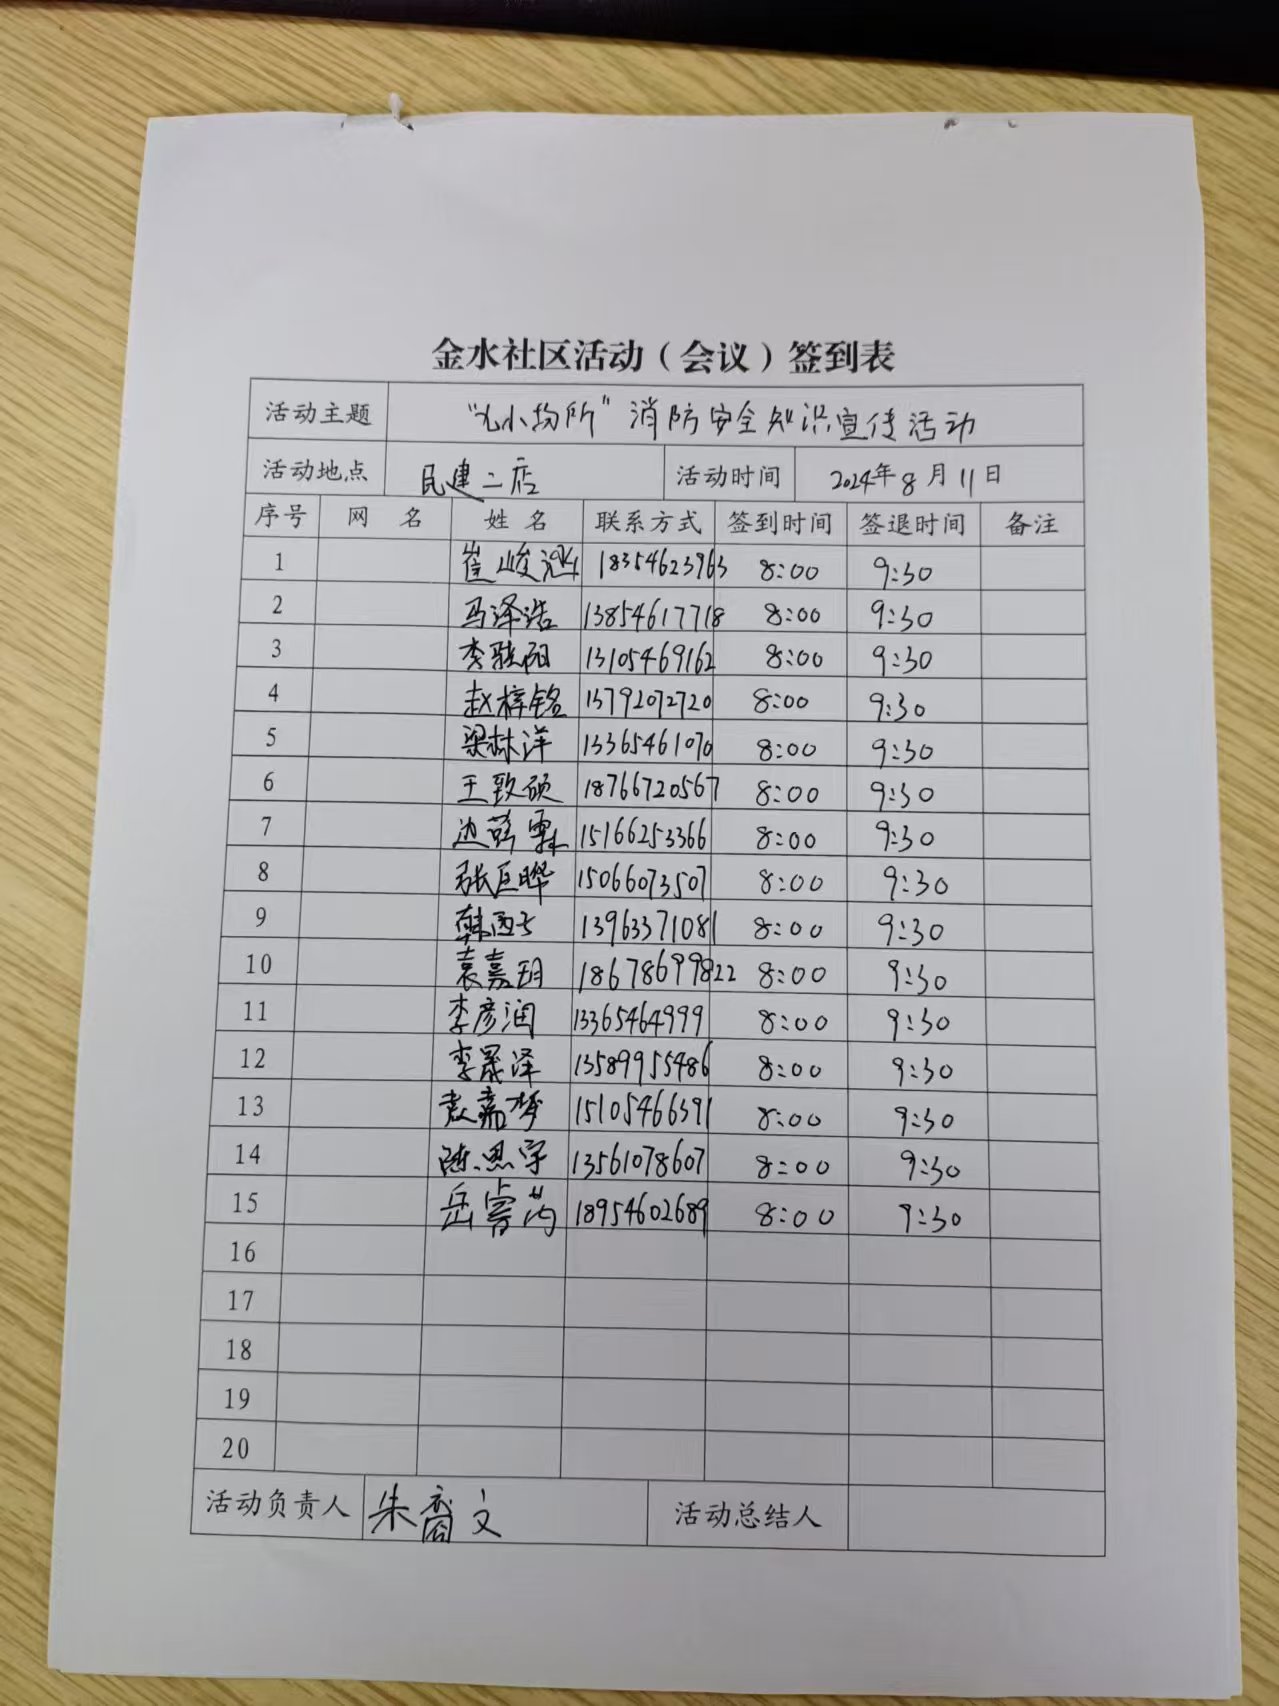 金水社区活动（会议）签到表
活动主题 “九小场所”消防安全知识宣传活动
活动地点 民建二店 活动时间 2024年8月11日
序号 网 名 姓 名 联系方式 签到时间 签退时间 备注
1 崔峻 18354623963 8:00 9:30
2 马泽浩 13854617718 8:00 9:30
3 李骁阳 13105469162 8:00 9:30
4 赵梓铭 13792072720 8:00 9:30
5 梁林洋 13365461070 8:00 9:30
6 王致硕 18766720567 8:00 9:30
7 边 霖 15166253366 8:00 9:30
8 张巨晔 15066073507 8:00 9:30
9 韩 13963371081 8:00 9:30
10 袁嘉玥 18678699822 8:00 9:30
11 李彦润 13365464999 8:00 9:30
12 李晟泽 13589955486 8:00 9:30
13 袁嘉梦 15105466391 8:00 9:30
14 陈思宇 13561078607 8:00 9:30
15 岳睿芮 18954602689 8:00 9:30
16
17
18
19
20
活动负责人 朱裔文 活动总结人